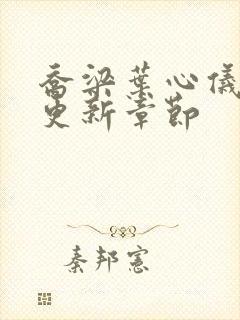 喬梁葉心儀
更新章節
秦邦憲